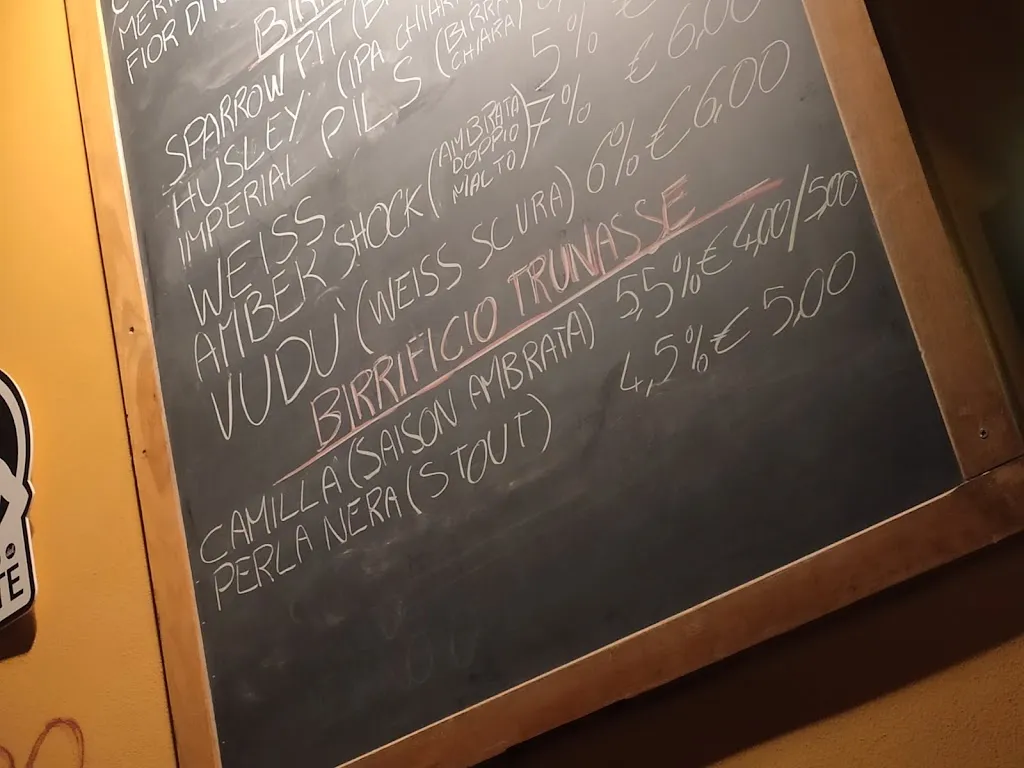 FIOR DI
BIR
SPARROW PIT
HUSLEY (IPA CHIARA
IMPERIAL PILS (BIRRA CHIARA)
WEISS 5% € 6,00
AMBER SHOCK (AMBRATA DOPPIO MALTO) 7%
VUDU' (WEISS SCURA) 6% € 6,00
BIRRIFICIO TRUNASSE
CAMILLA (SAISON AMBRATA) 5,5% € 4,00/5,00
PERLA NERA (STOUT) 4,5% € 5,00
TE